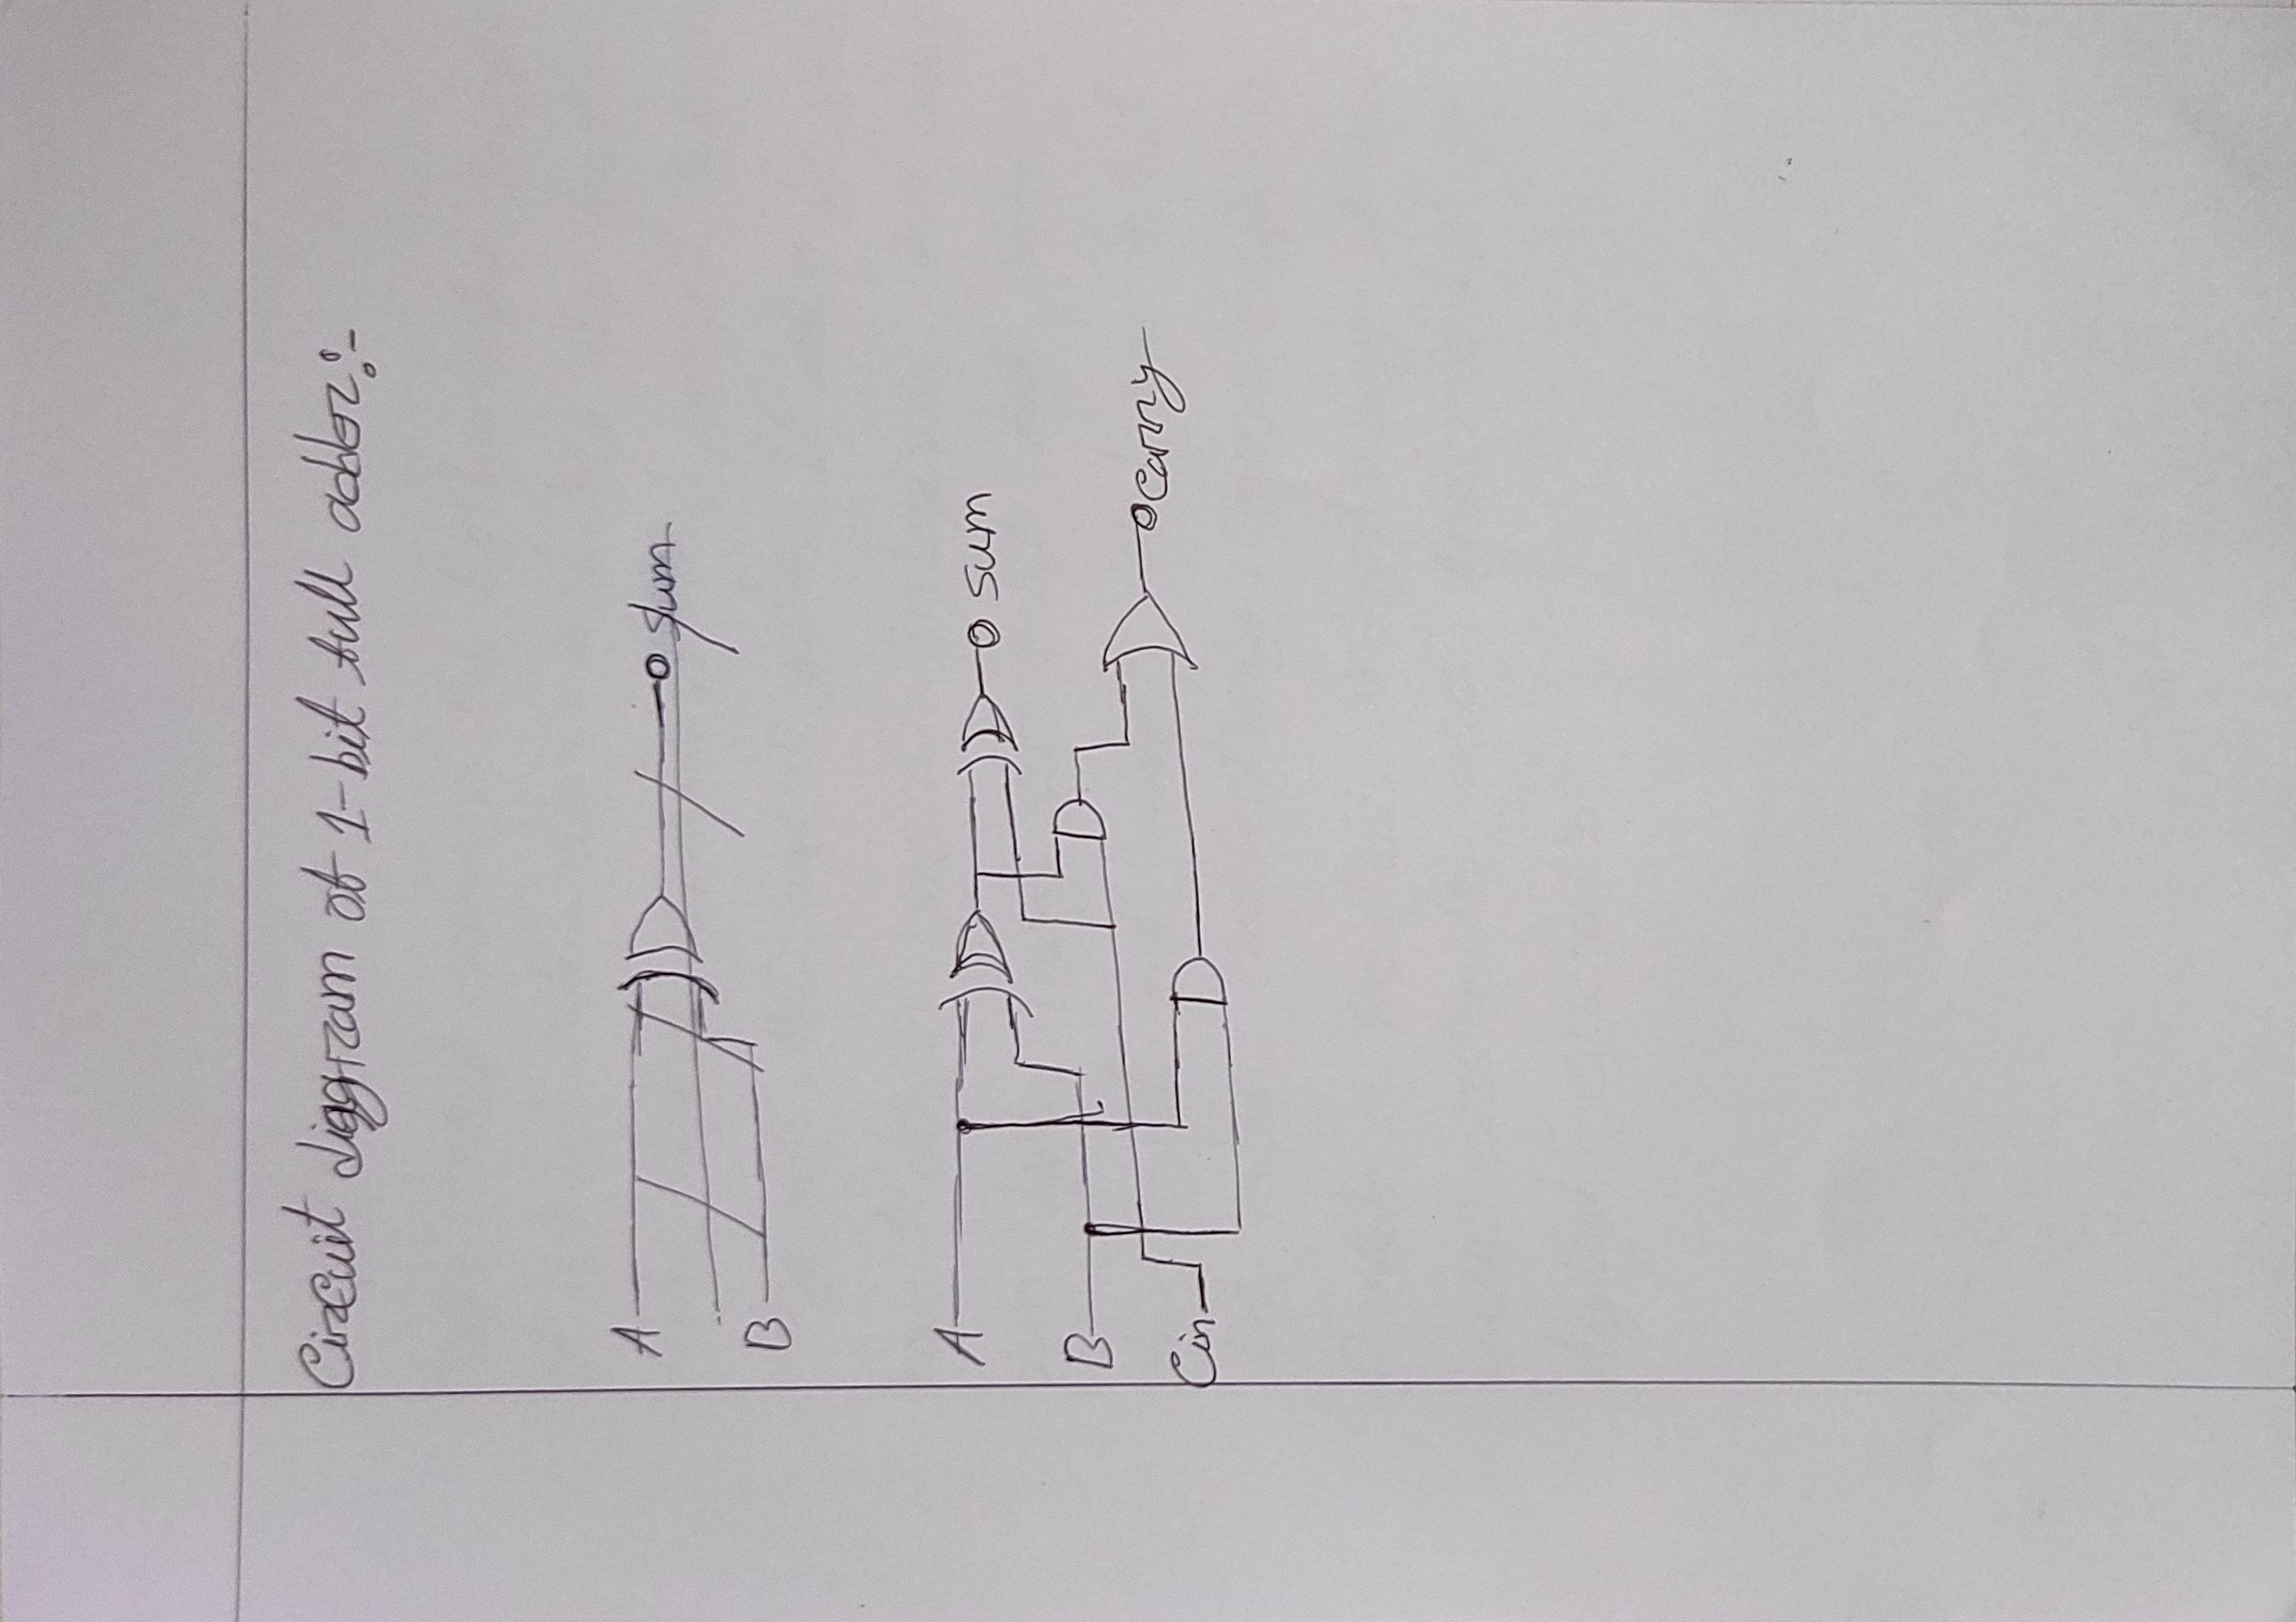 Circuit diagram of 1-bit full adder:-
A
sum
B
A
sum
B
Cin
carry